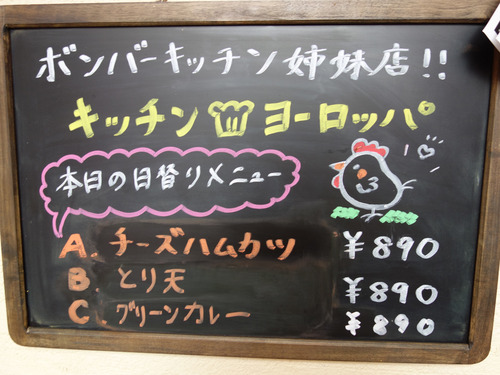 ボンバーキッチン姉妹店!!
キッチン ヨーロッパ
本日の日替りメニュー
A. チーズハムカツ ¥890
B. とり天 ¥890
C グリーンカレー ¥890